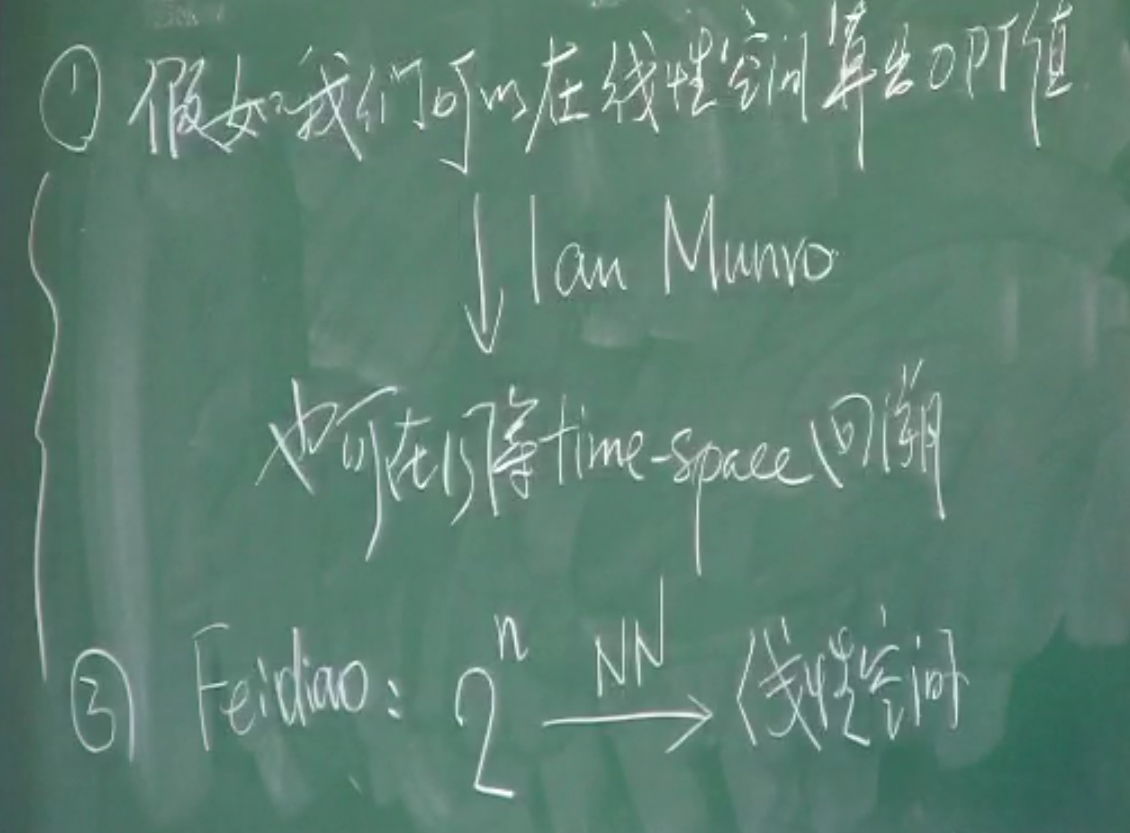 ① 假如我们可以在线性空间算出OPT值
Ian Munro
也可在同等time-space回溯
② Feidiao: 2ⁿ NN → 线性空间